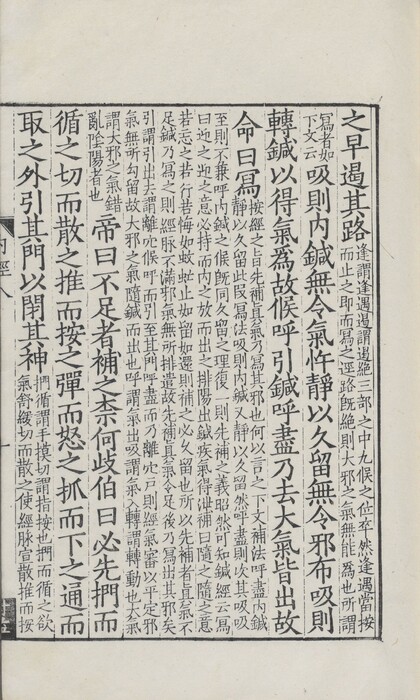 之早遏其路逢謂逢遇遏謂遏絕三部之中九候之位卒然逢遇當按
而止之即而寫之逕路既絕則大邪之氣無能為也所謂
寫者如
下文云
吸則内鍼無令氣忤靜以久留無令邪布吸則
轉鍼以得氣為故候呼引鍼呼盡乃去大氣皆出故
命曰寫按經之旨先補真氣乃寫其邪也何以言之下文補法呼盡内鍼
靜以久留此段寫法吸則内鍼又靜以久留然呼盡則次其吸吸
至則不兼呼内鍼之候既同久留之理復一則先補之義昭然可知鍼經云寫
曰迎之迎之意必持而内之放而出之排陽出鍼疾氣得泄補曰隨之隨之意
若忘之若行若悔如蚊虻止如留如還則補之必久留也所以先補者真氣不
足鍼乃寫之則經脉不滿邪氣無所排遣故先補真氣令足後乃寫出其邪矣
引謂引出去謂離穴候呼而引至其門呼盡而乃離穴戶則經氣審以平定邪
氣無所勾留故大邪之氣隨鍼而出也呼謂氣出吸謂氣入轉謂轉動也大氣
謂大邪之氣錯
亂陰陽者也
帝曰不足者補之柰何歧伯曰必先捫而
循之切而散之推而按之彈而怒之抓而下之通而
取之外引其門以閉其神捫循謂手摸切謂指按也捫而循之欲
氣舒緩切而散之使經脉宣散推而按